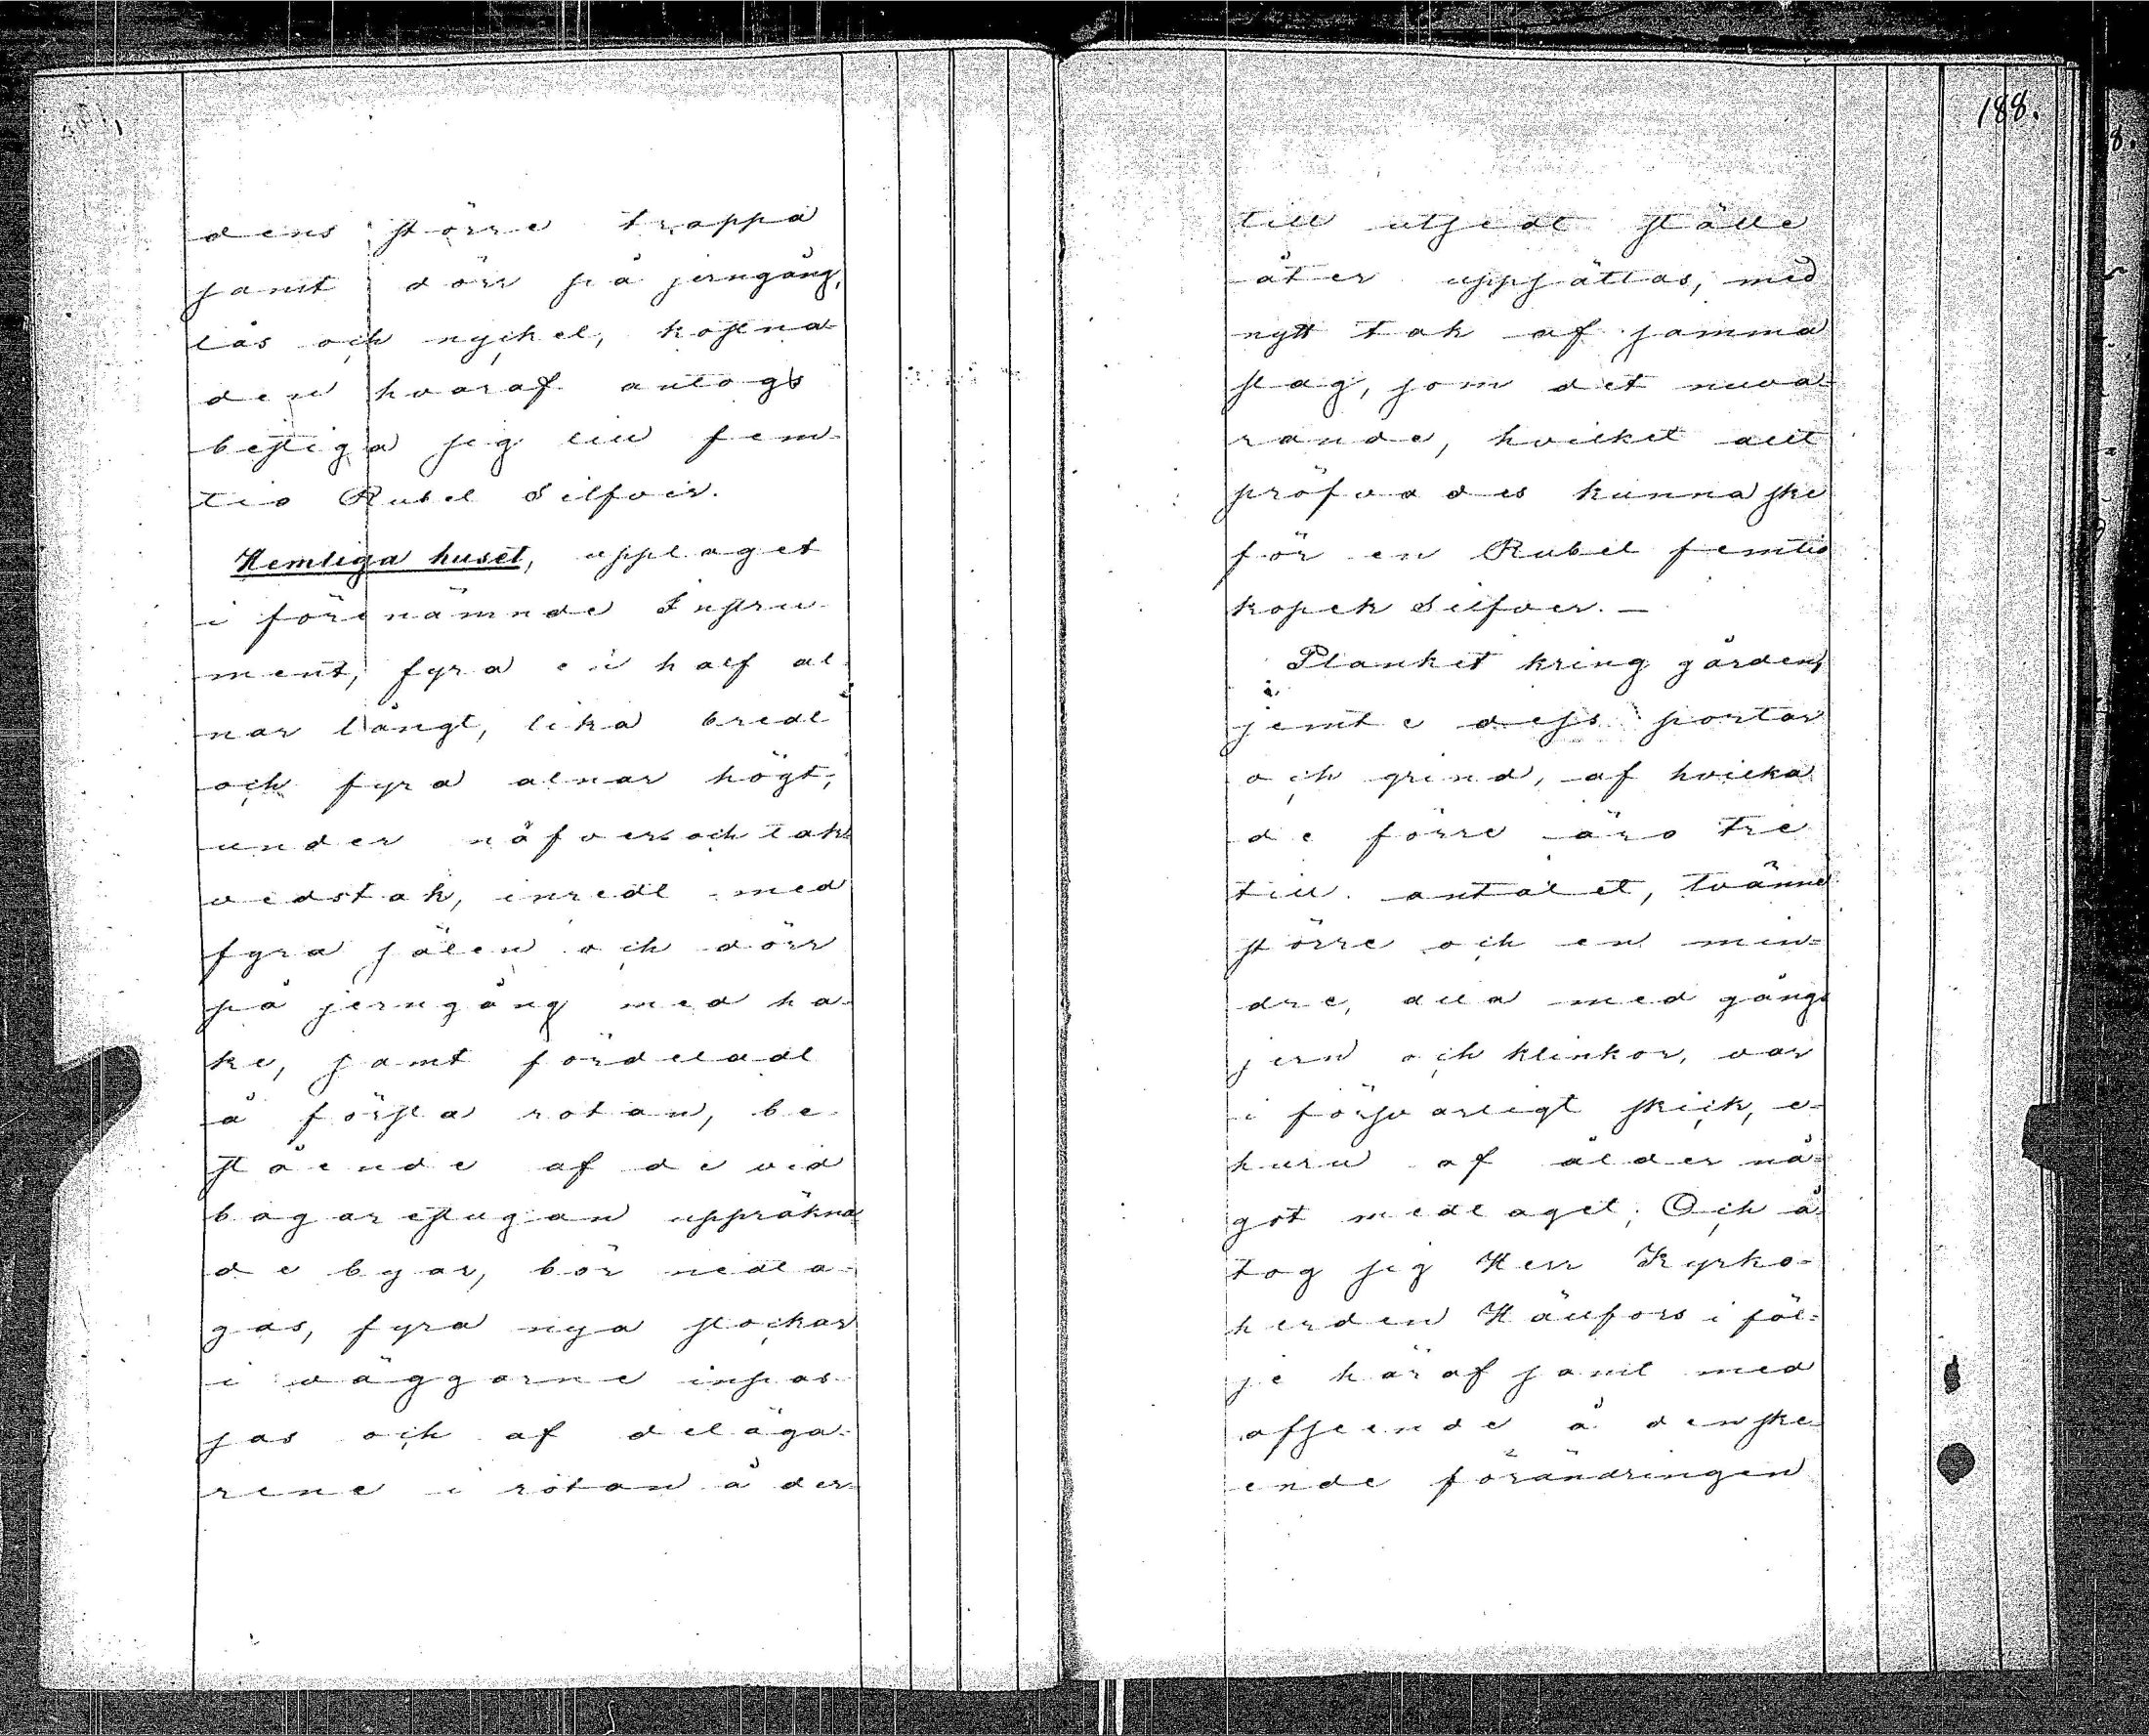 dens större trappa
samt dörr på jerngång,
lås och nyckel, kostna-
den hvaraf antogs
bestiga sig till fem-
tio Rubel Silfver.
Hemliga huset, upptaget
i förenämnde Instru-
ment, fyra en half al-
nar långt, lika bredt
och fyra alnar högt,
under näfver och tak-
vedstak, inredt med
fyra säten och dörr
på jerngång med ha-
ke, samt fördeladt
å första rotan, be-
stående af de vid
bagarestugan uppräkna-
de byar, bör nedta-
gas, fyra nya stockar
i väggarne inpas-
sas och af delaga-
rene i rotan å der-
188.
till utsedt ställe
åter uppsättas, med
nytt tak af samma
slag, som det nuva-
rande, hvilket allt
pröfvades kunna ske
för en Rubel femtio
kopek Silfver. —
Planket kring gården,
jemte dess portar
och grind, af hvilka
de förre äro tre
till antalet, tvänne
större och en min-
dre, alla med gångs
jern och klinkor, var
i försvarligt skick, e-
huru af ålder nå-
got medtaget; Och å-
tog sig Herr Kyrko-
herden Hällfors i föl-
je häraf samt med
afseende å den ske-
ende förändringen